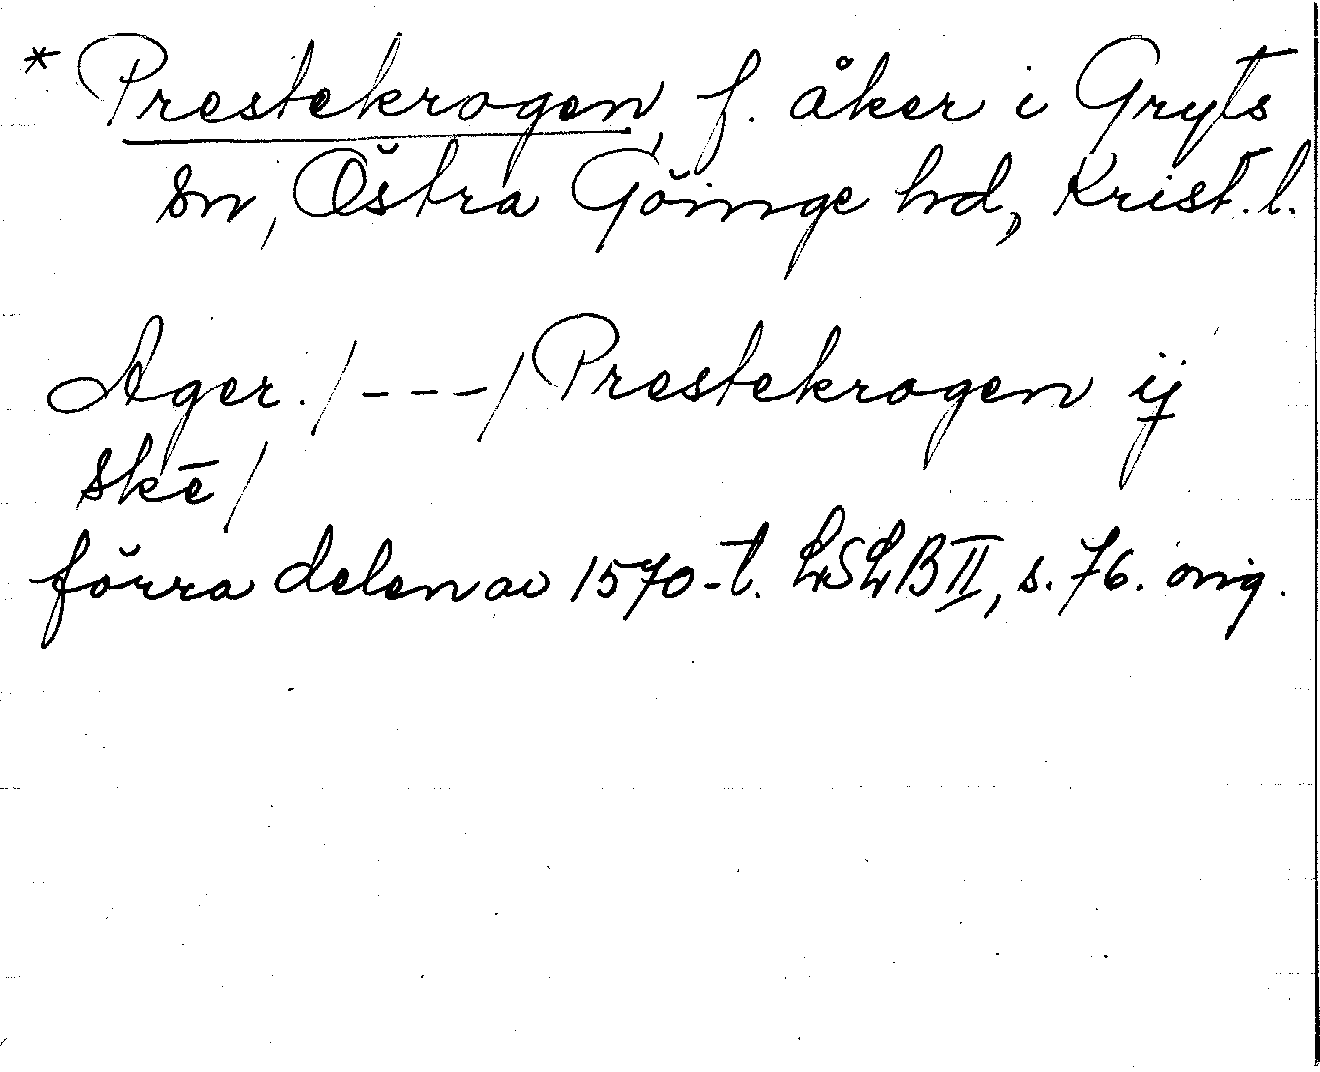 * Prestekrogen, f. åker i Gryts
sn, Östra Göinge hd, Krist. l.
Ager. / - - - / Prestekrogen ij
skē /
förra delen av 1570-t. LSLB II, s. 76. orig.